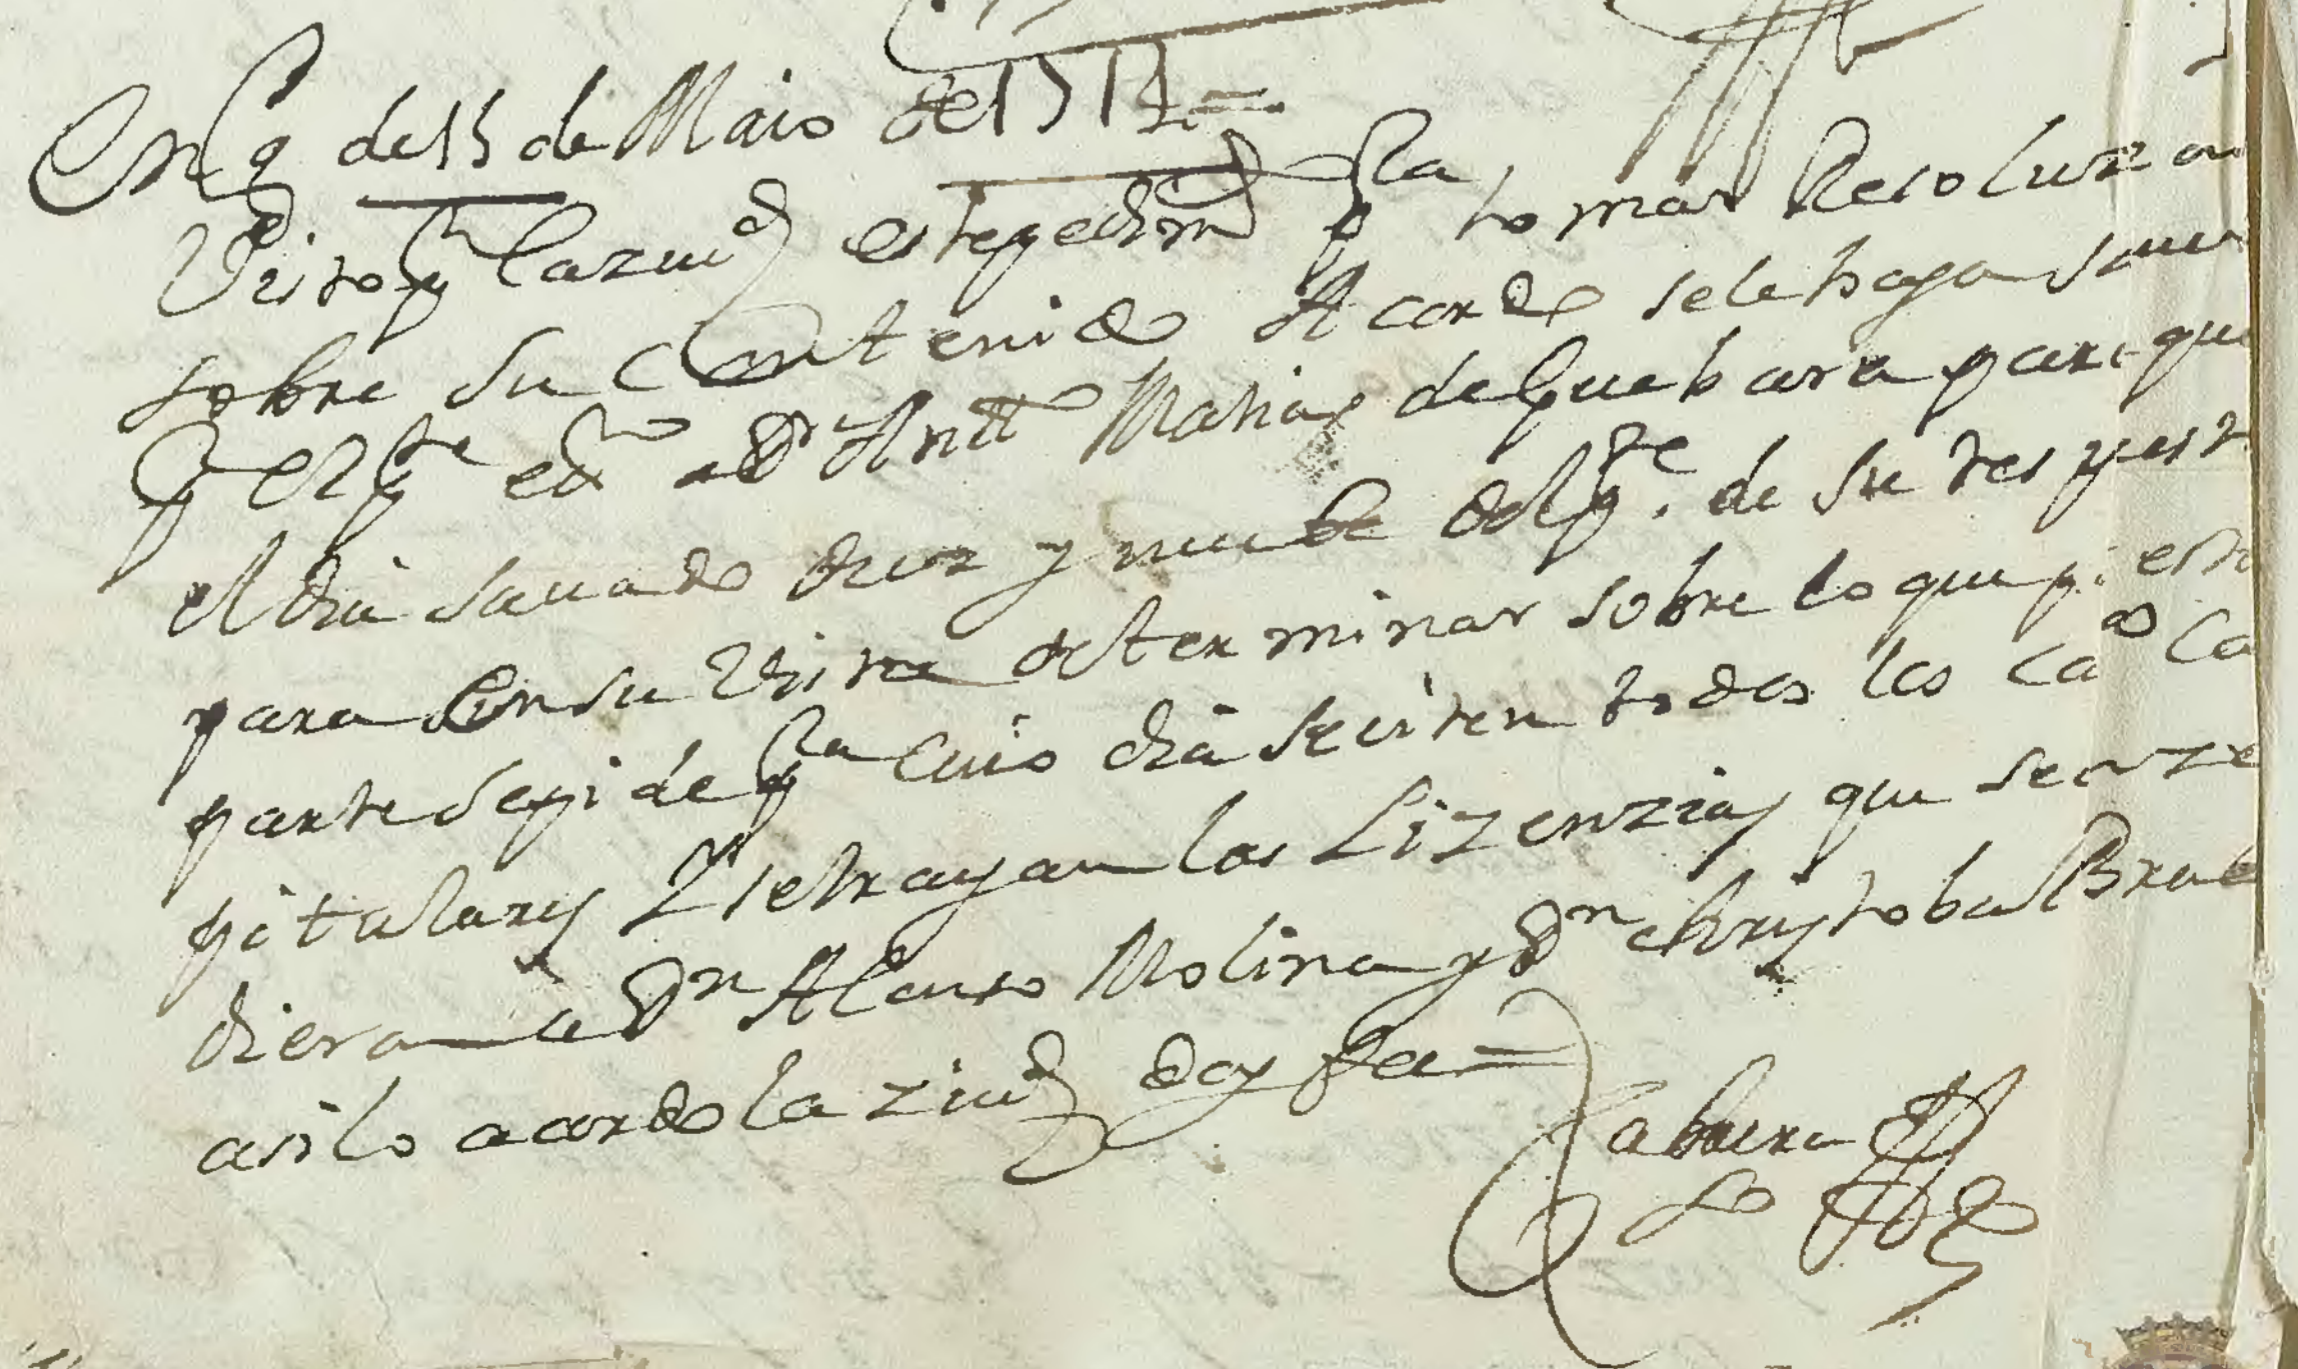 En Cº de 15 de Maio de 1714 =
Visto p la ziud este pedimto pa tomar Resoluzon
sobre su Contenido Acordo se le haga sauer
p el preste essno a Dn Antto Mathias de Guebara para que
el dia sauado diez y nuebe del pte de su respuesta
para en su Vista determinar sobre lo que pr esta
parte se pide pa cuio dia se citen todos los caos Ca
pitulares Y se traygan las Lizenzias que se conze
dieron a Dn Alonso Molina y Dn christobal Brabo
asi lo acordo la ziud doy fee =
Cabrera